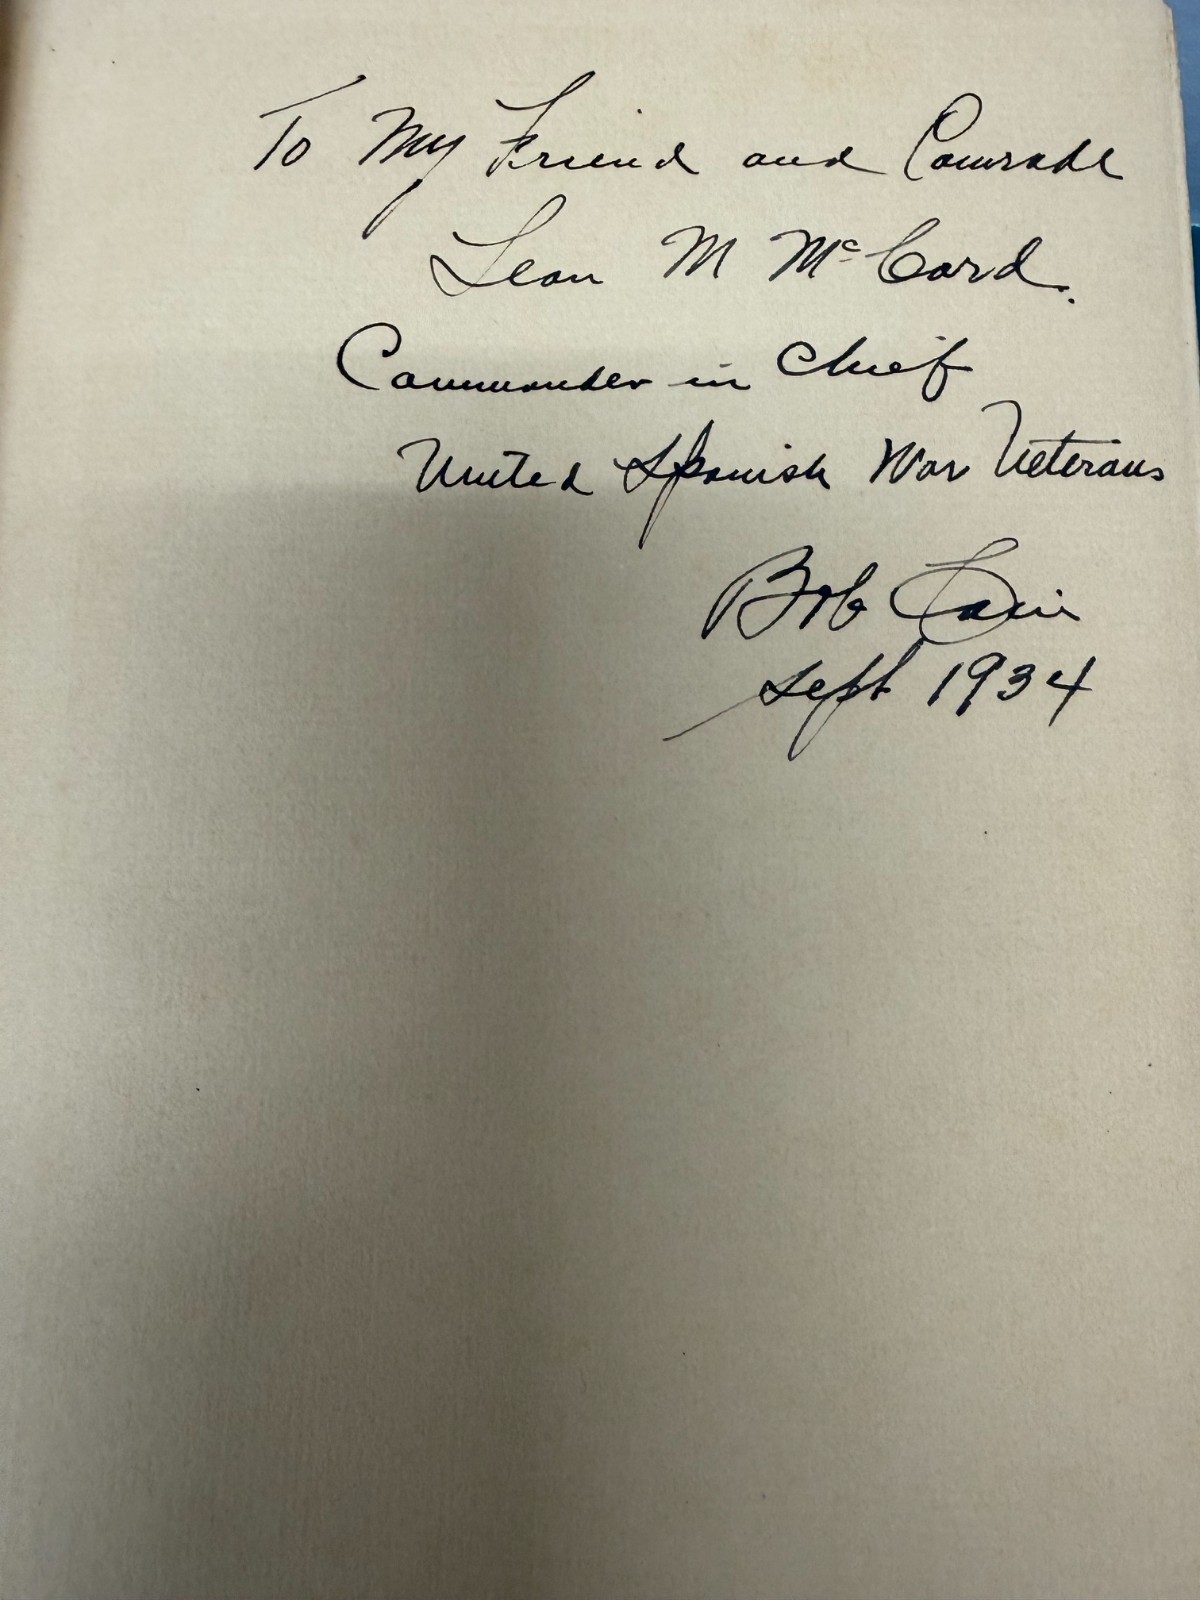 To My Friend and Comrade
Leon M McCord.
Commander in Chief
United Spanish War Veterans
Bob
Sept 1934